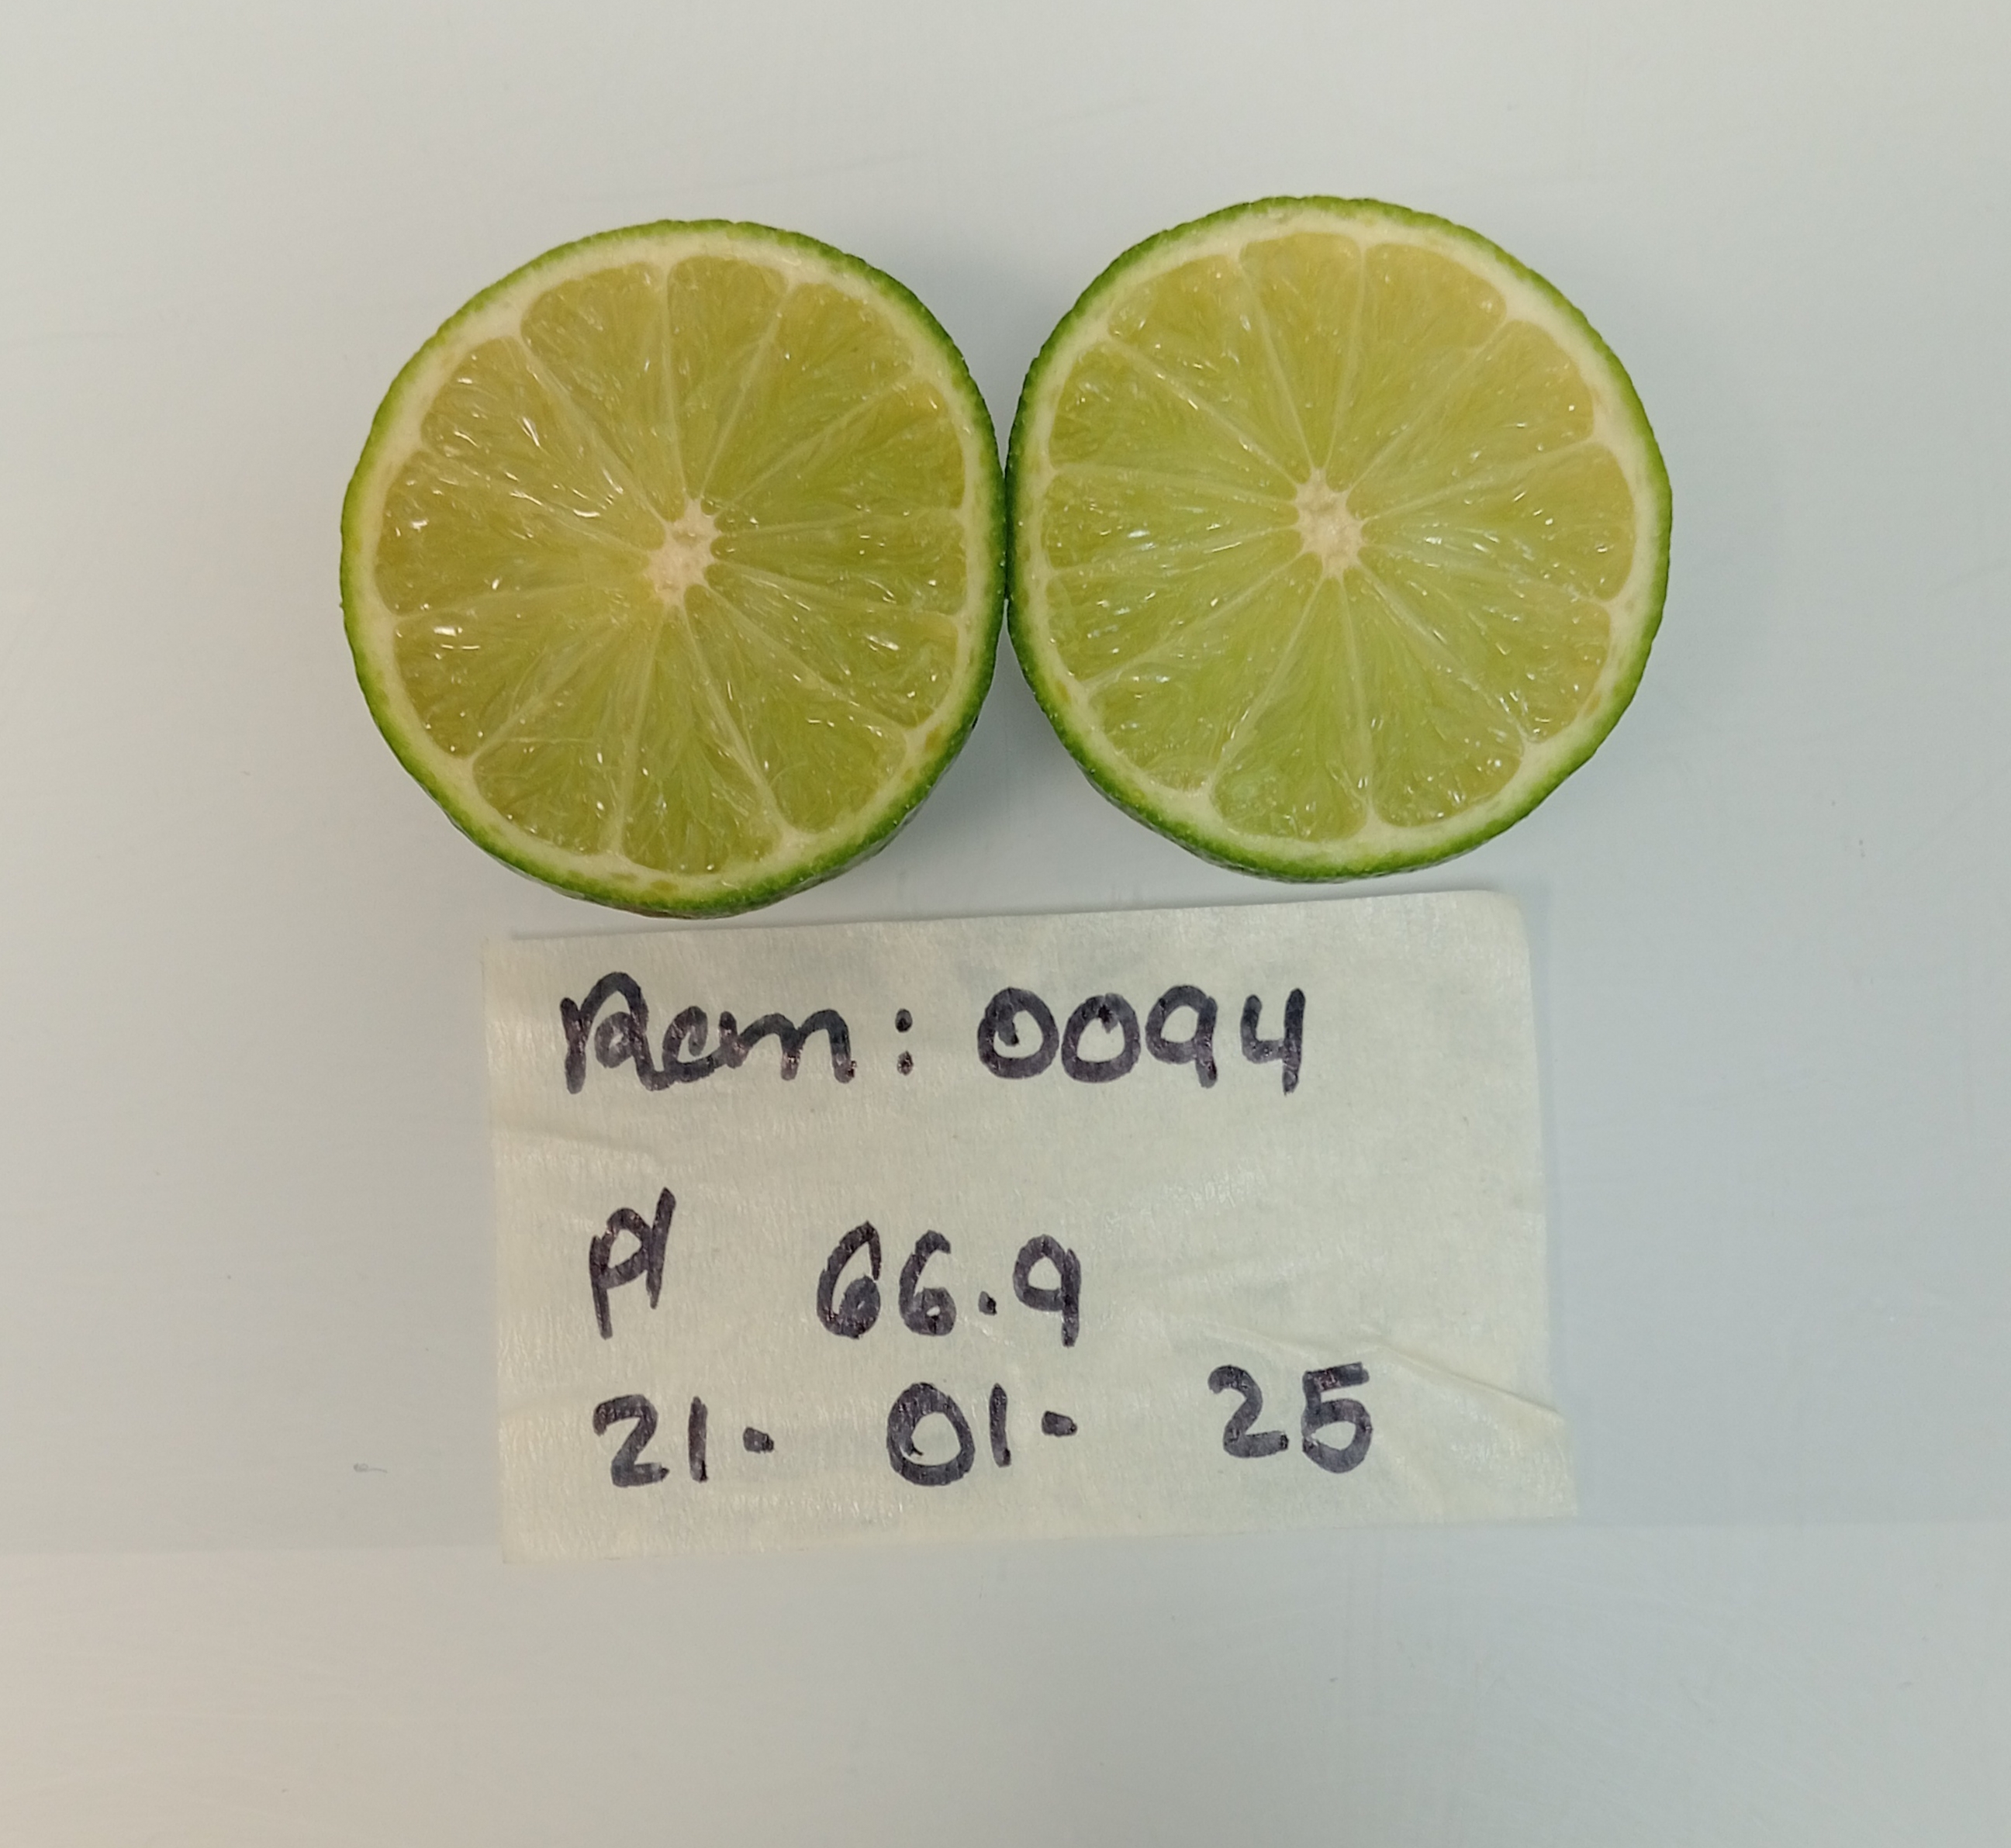 Rem: 0094
P/ 66.9
21- 01- 25